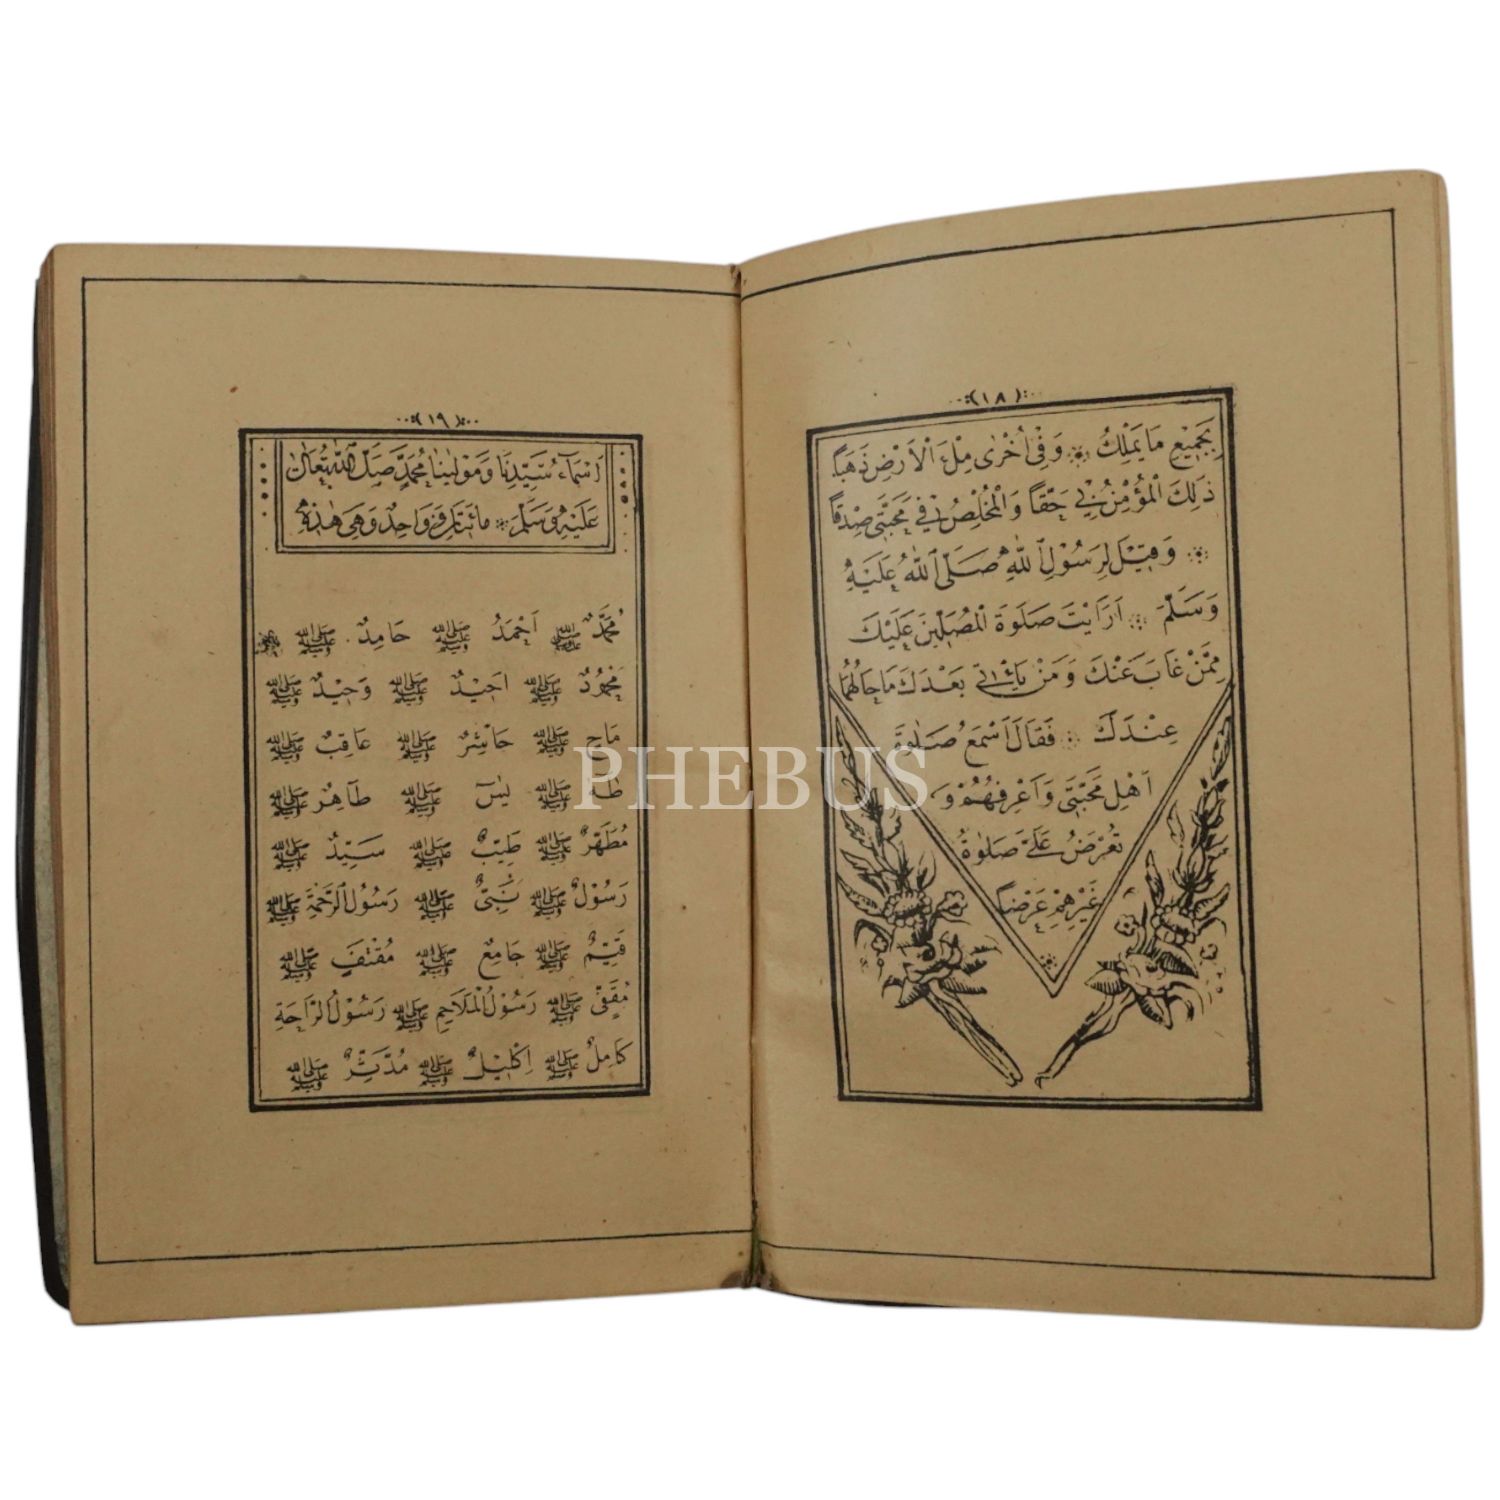 (١٨)
بِجَمِيْعِ مَا يَمْلِكُ وَفِيْ اُخْرٰى مِلْءَ الْاَرْضِ ذَهَبًا
ذٰلِكَ الْمُؤْمِنُ بِيْ حَقًّا وَالْمُخْلِصُ فِيْ مَحَبَّتِيْ صِدْقًا
وَقِيْلَ لِرَسُوْلِ اللّٰهِ صَلَّى اللّٰهُ عَلَيْهِ
وَسَلَّمَ اَرَاَيْتَ صَلٰوةَ الْمُصَلِّيْنَ عَلَيْكَ
مِمَّنْ غَابَ عَنْكَ وَمَنْ يَأْتِيْ بَعْدَكَ مَا حَالُهُمَا
عِنْدَكَ فَقَالَ اَسْمَعُ صَلٰوةَ
اَهْلِ مَحَبَّتِيْ وَاَعْرِفُهُمْ وَ
تُعْرَضُ عَلَيَّ صَلٰوةُ
غَيْرِهِمْ عَرْضًا
(١٩)
اَسْمَاءُ سَيِّدِنَا وَمَوْلٰينَا مُحَمَّدٍ صَلَّى اللّٰهُ تَعَالٰى
عَلَيْهِ وَسَلَّمَ مِائَتَانِ وَوَاحِدٌ وَهِيَ هٰذِهِ
مُحَمَّدٌ ﷺ اَحْمَدُ ﷺ حَامِدٌ ﷺ
مَحْمُوْدٌ ﷺ اَحِيْدٌ ﷺ وَحِيْدٌ ﷺ
مَاحٍ ﷺ حَاشِرٌ ﷺ عَاقِبٌ ﷺ
طٰهٰ ﷺ يٰسٓ ﷺ طَاهِرٌ ﷺ
مُطَهَّرٌ ﷺ طَيِّبٌ ﷺ سَيِّدٌ ﷺ
رَسُوْلٌ ﷺ نَبِيٌّ ﷺ رَسُوْلُ الرَّحْمَةِ ﷺ
قَيِّمٌ ﷺ جَامِعٌ ﷺ مُقْتَفٍ ﷺ
مُقَفّٰى ﷺ رَسُوْلُ الْمَلَاحِمِ ﷺ رَسُوْلُ الرَّاحَةِ
كَامِلٌ ﷺ اِكْلِيْلٌ ﷺ مُدَّثِّرٌ ﷺ
PHEBUS